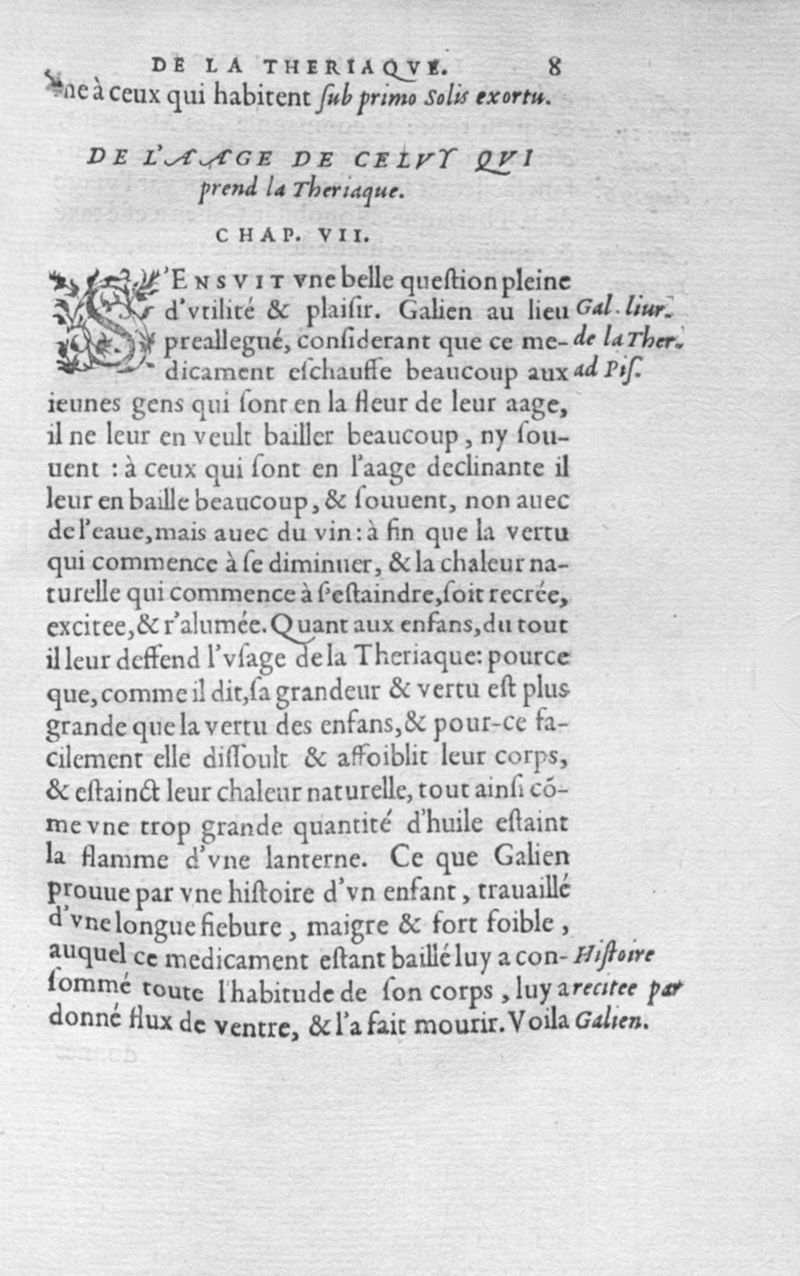 DE LA THERIAQVE. 8
ne à ceux qui habitent ſub primo Solis exortu.
DE L'AAGE DE CELVY QVI
prend la Theriaque.
CHAP. VII.
S'ENSVIT vne belle queſtion pleine
d'vtilité & plaiſir. Galien au lieu Gal. liur.
preallegué, conſiderant que ce me- de la Ther.
dicament eſchauffe beaucoup aux ad Piſ.
ieunes gens qui ſont en la fleur de leur aage,
il ne leur en veult bailler beaucoup, ny ſou-
uent : à ceux qui ſont en l'aage declinante il
leur en baille beaucoup, & ſouuent, non auec
de l'eaue, mais auec du vin: à fin que la vertu
qui commence à ſe diminuer, & la chaleur na-
turelle qui commence à ſ'eſtaindre, ſoit recrée,
excitee, & r'alumée. Quant aux enfans, du tout
il leur deffend l'vſage de la Theriaque: pource
que, comme il dit, ſa grandeur & vertu eſt plus
grande que la vertu des enfans, & pour-ce fa-
cilement elle diſſoult & affoiblit leur corps,
& eſtainct leur chaleur naturelle, tout ainſi cō-
me vne trop grande quantité d'huile eſtaint
la flamme d'vne lanterne. Ce que Galien
prouue par vne hiſtoire d'vn enfant, trauaillé
d'vne longue fiebure, maigre & fort foible,
auquel ce medicament eſtant baillé luy a con- Hiſtoire
ſommé toute l'habitude de ſon corps, luy a recitee par
donné flux de ventre, & l'a fait mourir. Voila Galien.